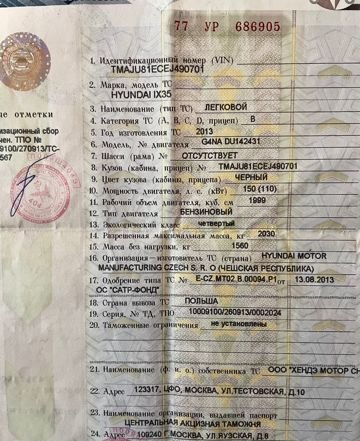 77 УР 686905
1. Идентификационный номер (VIN)
TMAJU81ECEJ490701
2. Марка, модель ТС
HYUNDAI IX35
3. Наименование (тип ТС) ЛЕГКОВОЙ
4. Категория ТС (А, В, С, D, прицеп) B
5. Год изготовления ТС 2013
6. Модель, № двигателя G4NA DU142431
7. Шасси (рама) № ОТСУТСТВУЕТ
8. Кузов (кабина, прицеп) № TMAJU81ECEJ490701
9. Цвет кузова (кабины, прицепа) ЧЕРНЫЙ
10. Мощность двигателя, л. с. (кВт) 150 (110)
11. Рабочий объем двигателя, куб. см 1999
12. Тип двигателя БЕНЗИНОВЫЙ
13. Экологический класс четвертый
14. Разрешенная максимальная масса, кг 2030
15. Масса без нагрузки, кг 1560
16. Организация-изготовитель ТС (страна) HYUNDAI MOTOR
MANUFACTURING CZECH S. R. O (ЧЕШСКАЯ РЕСПУБЛИКА)
17. Одобрение типа ТС № E-CZ.MT02.B.00094.P1 от 13.08.2013
ОС "САТР-ФОНД"
18. Страна вывоза ТС ПОЛЬША
19. Серия, № ТД, ТПО 10009100/260913/0002024
20. Таможенные ограничения не установлены
21. Наименование (ф. и. о.) собственника ТС ООО "ХЕНДЭ МОТОР
22. Адрес 123317, ЦФО, МОСКВА, УЛ.ТЕСТОВСКАЯ, Д.10
23. Наименование организации, выдавшей паспорт
ЦЕНТРАЛЬНАЯ АКЦИЗНАЯ ТАМОЖНЯ
24. Адрес 109240 Г.МОСКВА, УЛ.ЯУЗСКАЯ, Д.8
ые отметки
изационный сбор
чен. ТПО №
9100/270913/ТС-
567